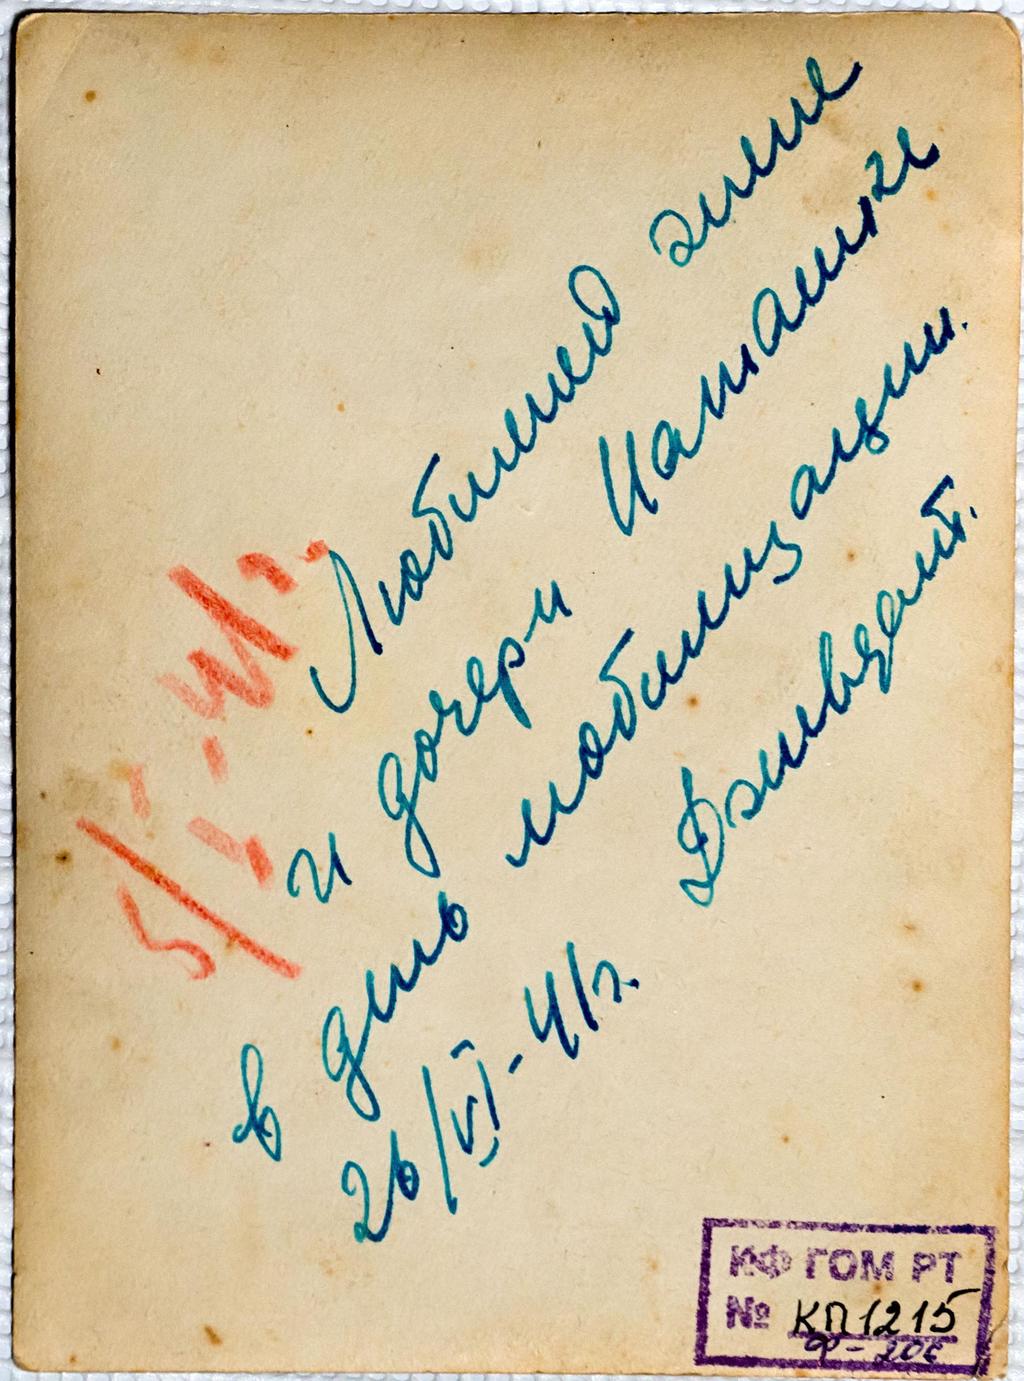 Любимой жене
и дочери Наташке
в день мобилизации.
26/VI-41г. 
5/ 41г.
ИФ ГОМ РТ
№ КП1215
Ф-206